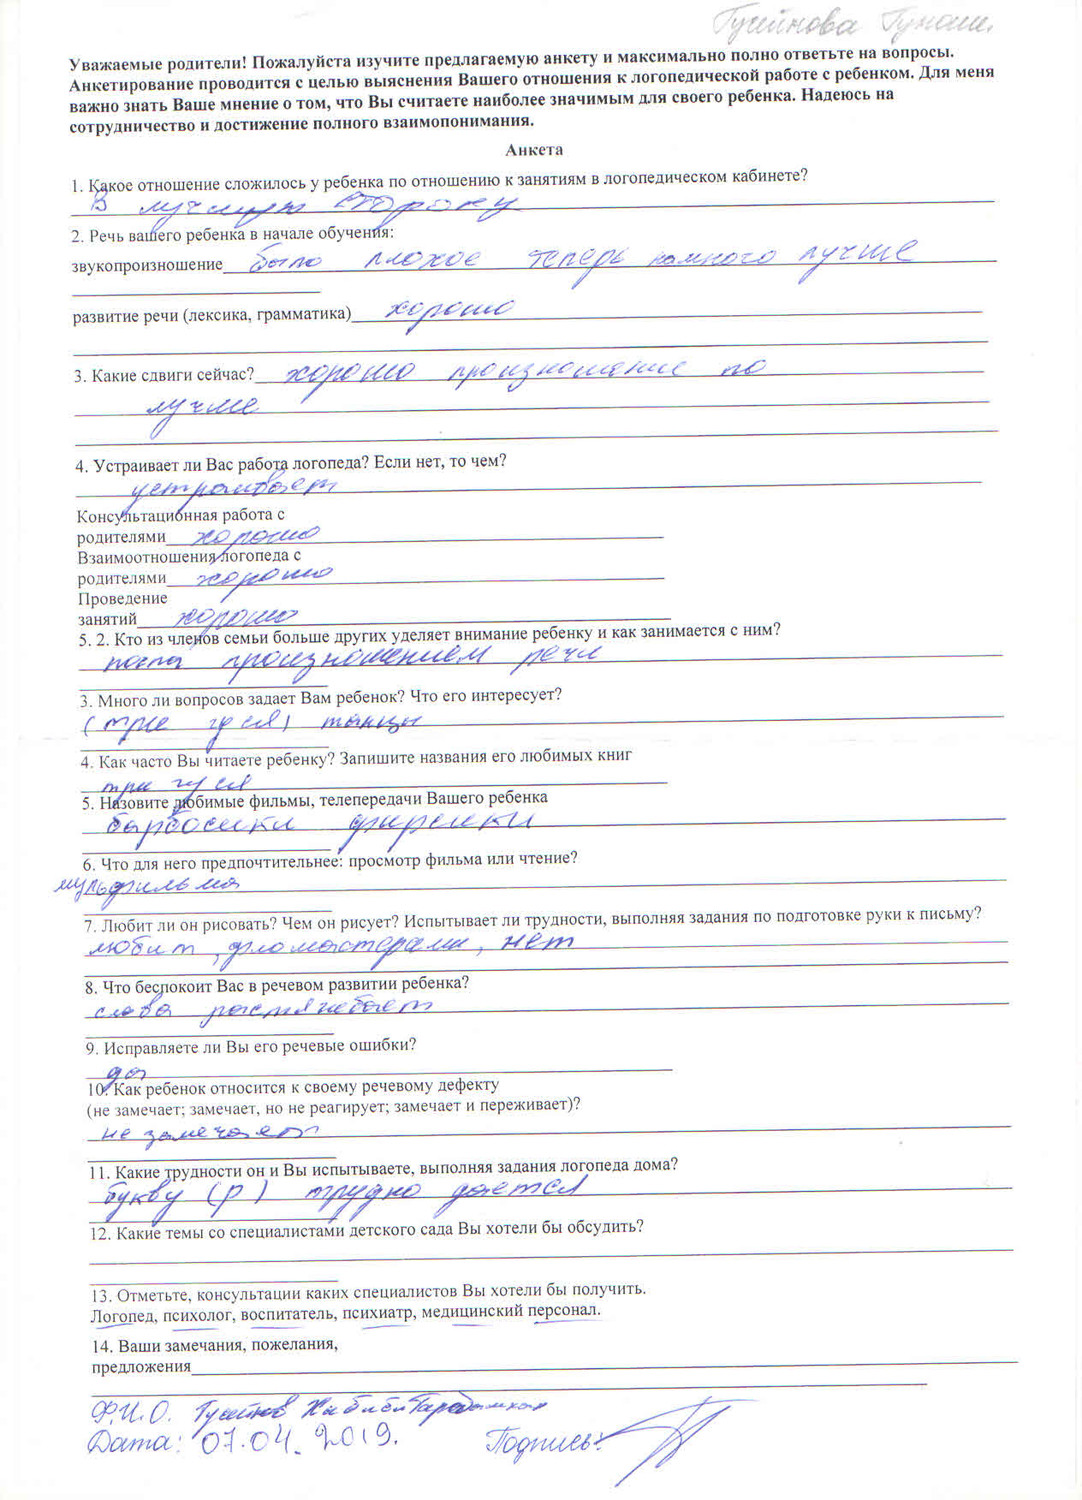 Гусейнова Гунаш.
Уважаемые родители! Пожалуйста изучите предлагаемую анкету и максимально полно ответьте на вопросы.
Анкетирование проводится с целью выяснения Вашего отношения к логопедической работе с ребенком. Для меня
важно знать Ваше мнение о том, что Вы считаете наиболее значимым для своего ребенка. Надеюсь на
сотрудничество и достижение полного взаимопонимания.
Анкета
1. Какое отношение сложилось у ребенка по отношению к занятиям в логопедическом кабинете?
В лучшую сторону
2. Речь вашего ребенка в начале обучения:
звукопроизношение было плохое теперь намного лучше
развитие речи (лексика, грамматика) хорошо
3. Какие сдвиги сейчас? хорошо произношение по
лучше
4. Устраивает ли Вас работа логопеда? Если нет, то чем?
устраивает
Консультационная работа с
родителями хорошо
Взаимоотношения логопеда с
родителями хорошо
Проведение
занятий хорошо
5. 2. Кто из членов семьи больше других уделяет внимание ребенку и как занимается с ним?
произношением речи
3. Много ли вопросов задает Вам ребенок? Что его интересует?
(три гуся) танцы
4. Как часто Вы читаете ребенку? Запишите названия его любимых книг
три гуся
5. Назовите любимые фильмы, телепередачи Вашего ребенка
барбосики фиксики
6. Что для него предпочтительнее: просмотр фильма или чтение?
мульфильма
7. Любит ли он рисовать? Чем он рисует? Испытывает ли трудности, выполняя задания по подготовке руки к письму?
любит, фломастерами, нет
8. Что беспокоит Вас в речевом развитии ребенка?
слова растягевает
9. Исправляете ли Вы его речевые ошибки?
да
10. Как ребенок относится к своему речевому дефекту
(не замечает; замечает, но не реагирует; замечает и переживает)?
не замечает
11. Какие трудности он и Вы испытываете, выполняя задания логопеда дома?
букву (р) трудно дается
12. Какие темы со специалистами детского сада Вы хотели бы обсудить?
13. Отметьте, консультации каких специалистов Вы хотели бы получить.
Логопед, психолог, воспитатель, психиатр, медицинский персонал.
14. Ваши замечания, пожелания,
предложения
Ф.И.О. Гусейнов
Дата: 07.04.2019. Подпись: